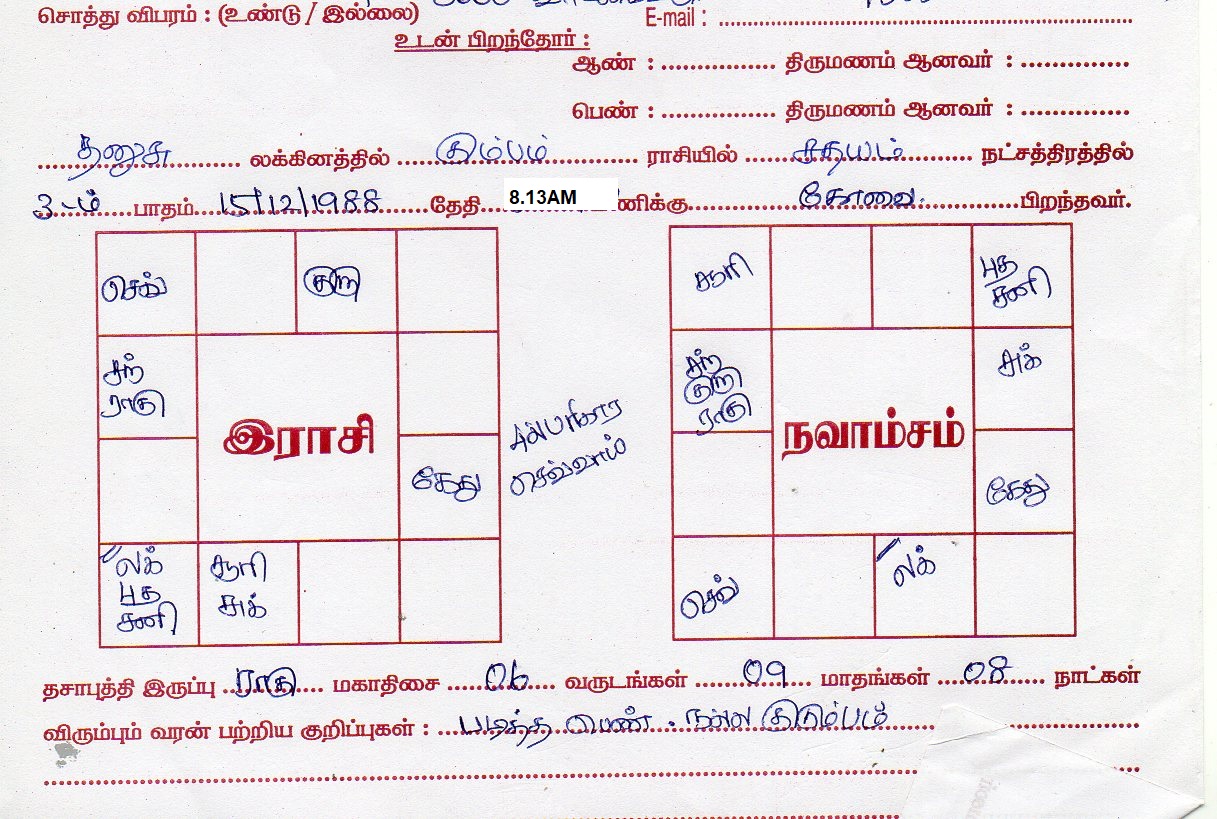 சொத்து விபரம் : (உண்டு / இல்லை) E-mail :
உடன் பிறந்தோர் :
ஆண் : திருமணம் ஆனவர் :
பெண் : திருமணம் ஆனவர் :
தனுசு லக்கினத்தில் கும்பம் ராசியில் சதயம் நட்சத்திரத்தில்
3-ம் பாதம் 15/12/1988 தேதி 8.13AM ணிக்கு கோவை பிறந்தவர்.
செவ் குரு
சூரி புத சனி
சந் ராகு
சந் குரு ராகு சுக்
இராசி
நவாம்சம்
பரிகார
செவ்வாய்
கேது
கேது
லக் புத சனி சூரி சுக்
செவ் லக்
தசாபுத்தி இருப்பு ராகு மகாதிசை 06 வருடங்கள் 09 மாதங்கள் 08 நாட்கள்
விரும்பும் வரன் பற்றிய குறிப்புகள் : படித்த பெண். நல்ல குடும்பம்